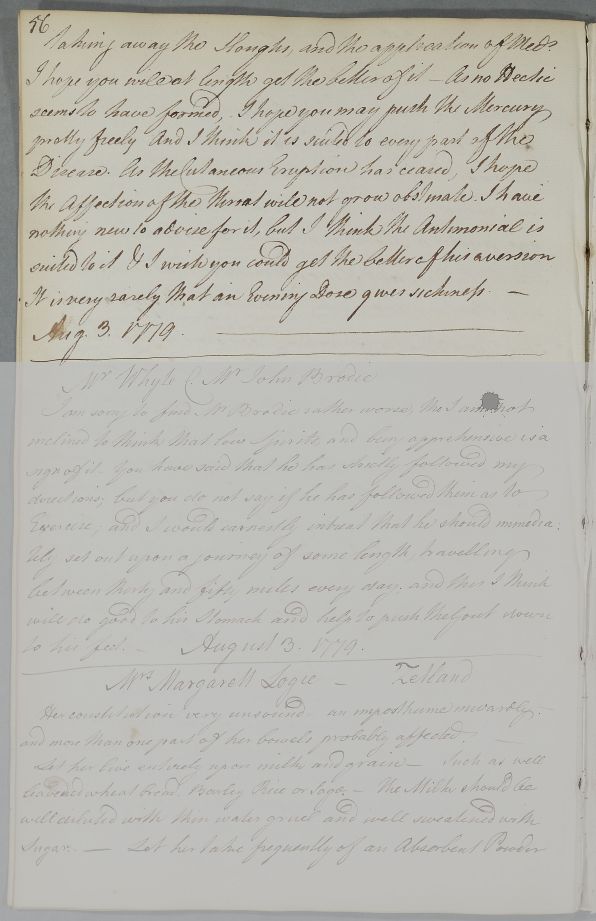 56
taking away the Sloughs, and the application of Meds
I hope you will at length get the better of it – As no Hectic
seems to have formed, I hope you may push the Mercury
pretty freely And I think it is suited to every part of the
Disease. As the Cutaneous Eruption has ceased, I hope
the Affection of the throat will not grow obstinate. I have
nothing new to advise for it, but I think the Antimonial is
suited to it & I wish you could get the better of his aversion
It is very rarely that an Evening Dose gives sickness. —
Aug. 3. 1779.
Mr Whyte C. Mr John Brodie
I am sorry to find Mr Brodie rather worse, tho I am not
inclined to think that low Spirits, and being apprehensive is a
sign of it. You have said that he has strictly followed my
directions; but you do not say if he has followed them as to
Exercise; and I would earnestly intreat that he should immedia:
tely set out upon a journey of some length, travelling
between thirty and fifty miles every day. and this I think
will do good to his Stomach and help to push the Gout down
to his feet. – August 3. 1779.
Mrs Margarett Logie – Zetland
Her constitution very unsound – an imposthume inwardly, –
and more than one part of her bowels probably affected. –
Let her live entirely upon milk and grain – Such as well
leavened wheat bread, Barley Rice or Sago, – The Milk should be
well diluted with thin water gruel and well sweetened with
Sugar. — Let her take frequently of an Absorbent Powder